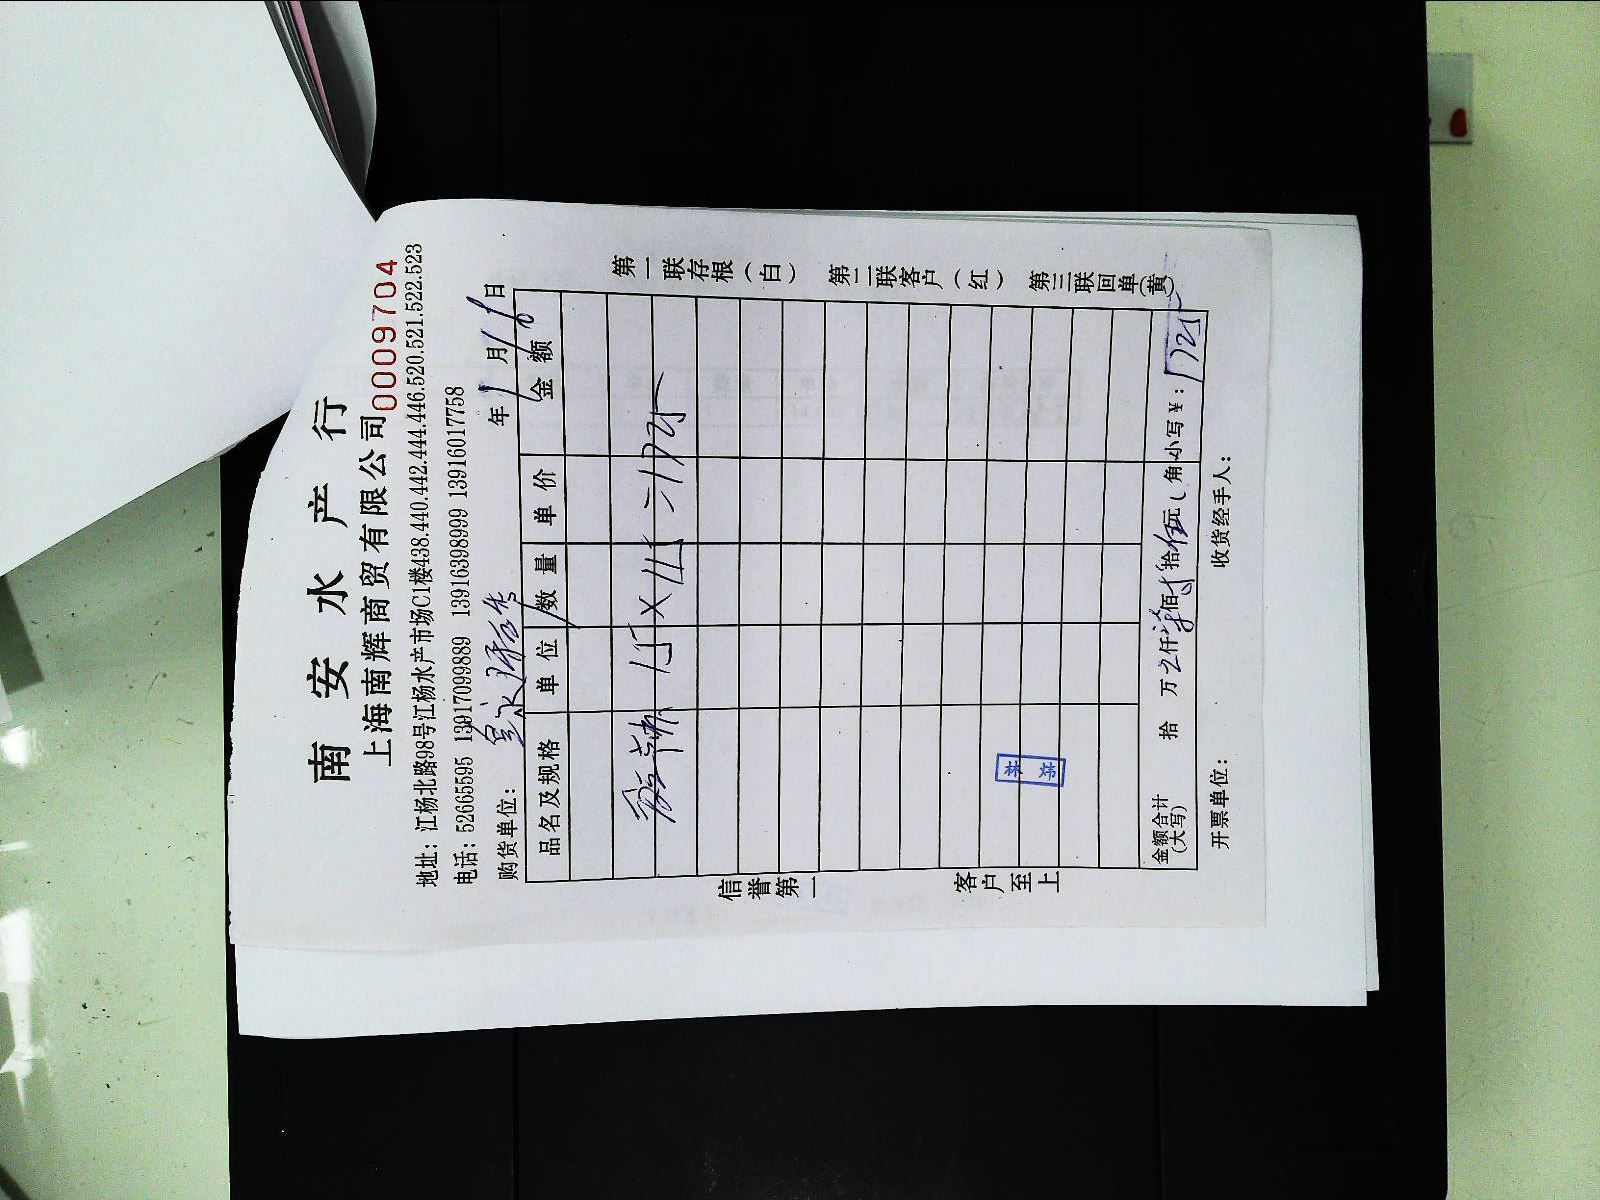 南安水产行
上海南辉商贸有限公司 0009704
地址：江杨北路98号江杨水产市场C1楼438.440.442.444.446.520.521.522.523
电话：52665595 13917099889 13916398999 13916017758
购货单位： 年 1 月 16 日
品名及规格 单位 数量 单价 金额
15×115=1725
金额合计（大写） 拾 万 仟 柒佰 拾伍元 角 小写¥：1725
开票单位： 收货经手人：
信誉第一 客户至上
第一联存根（白） 第二联客户（红） 第三联回单（黄）